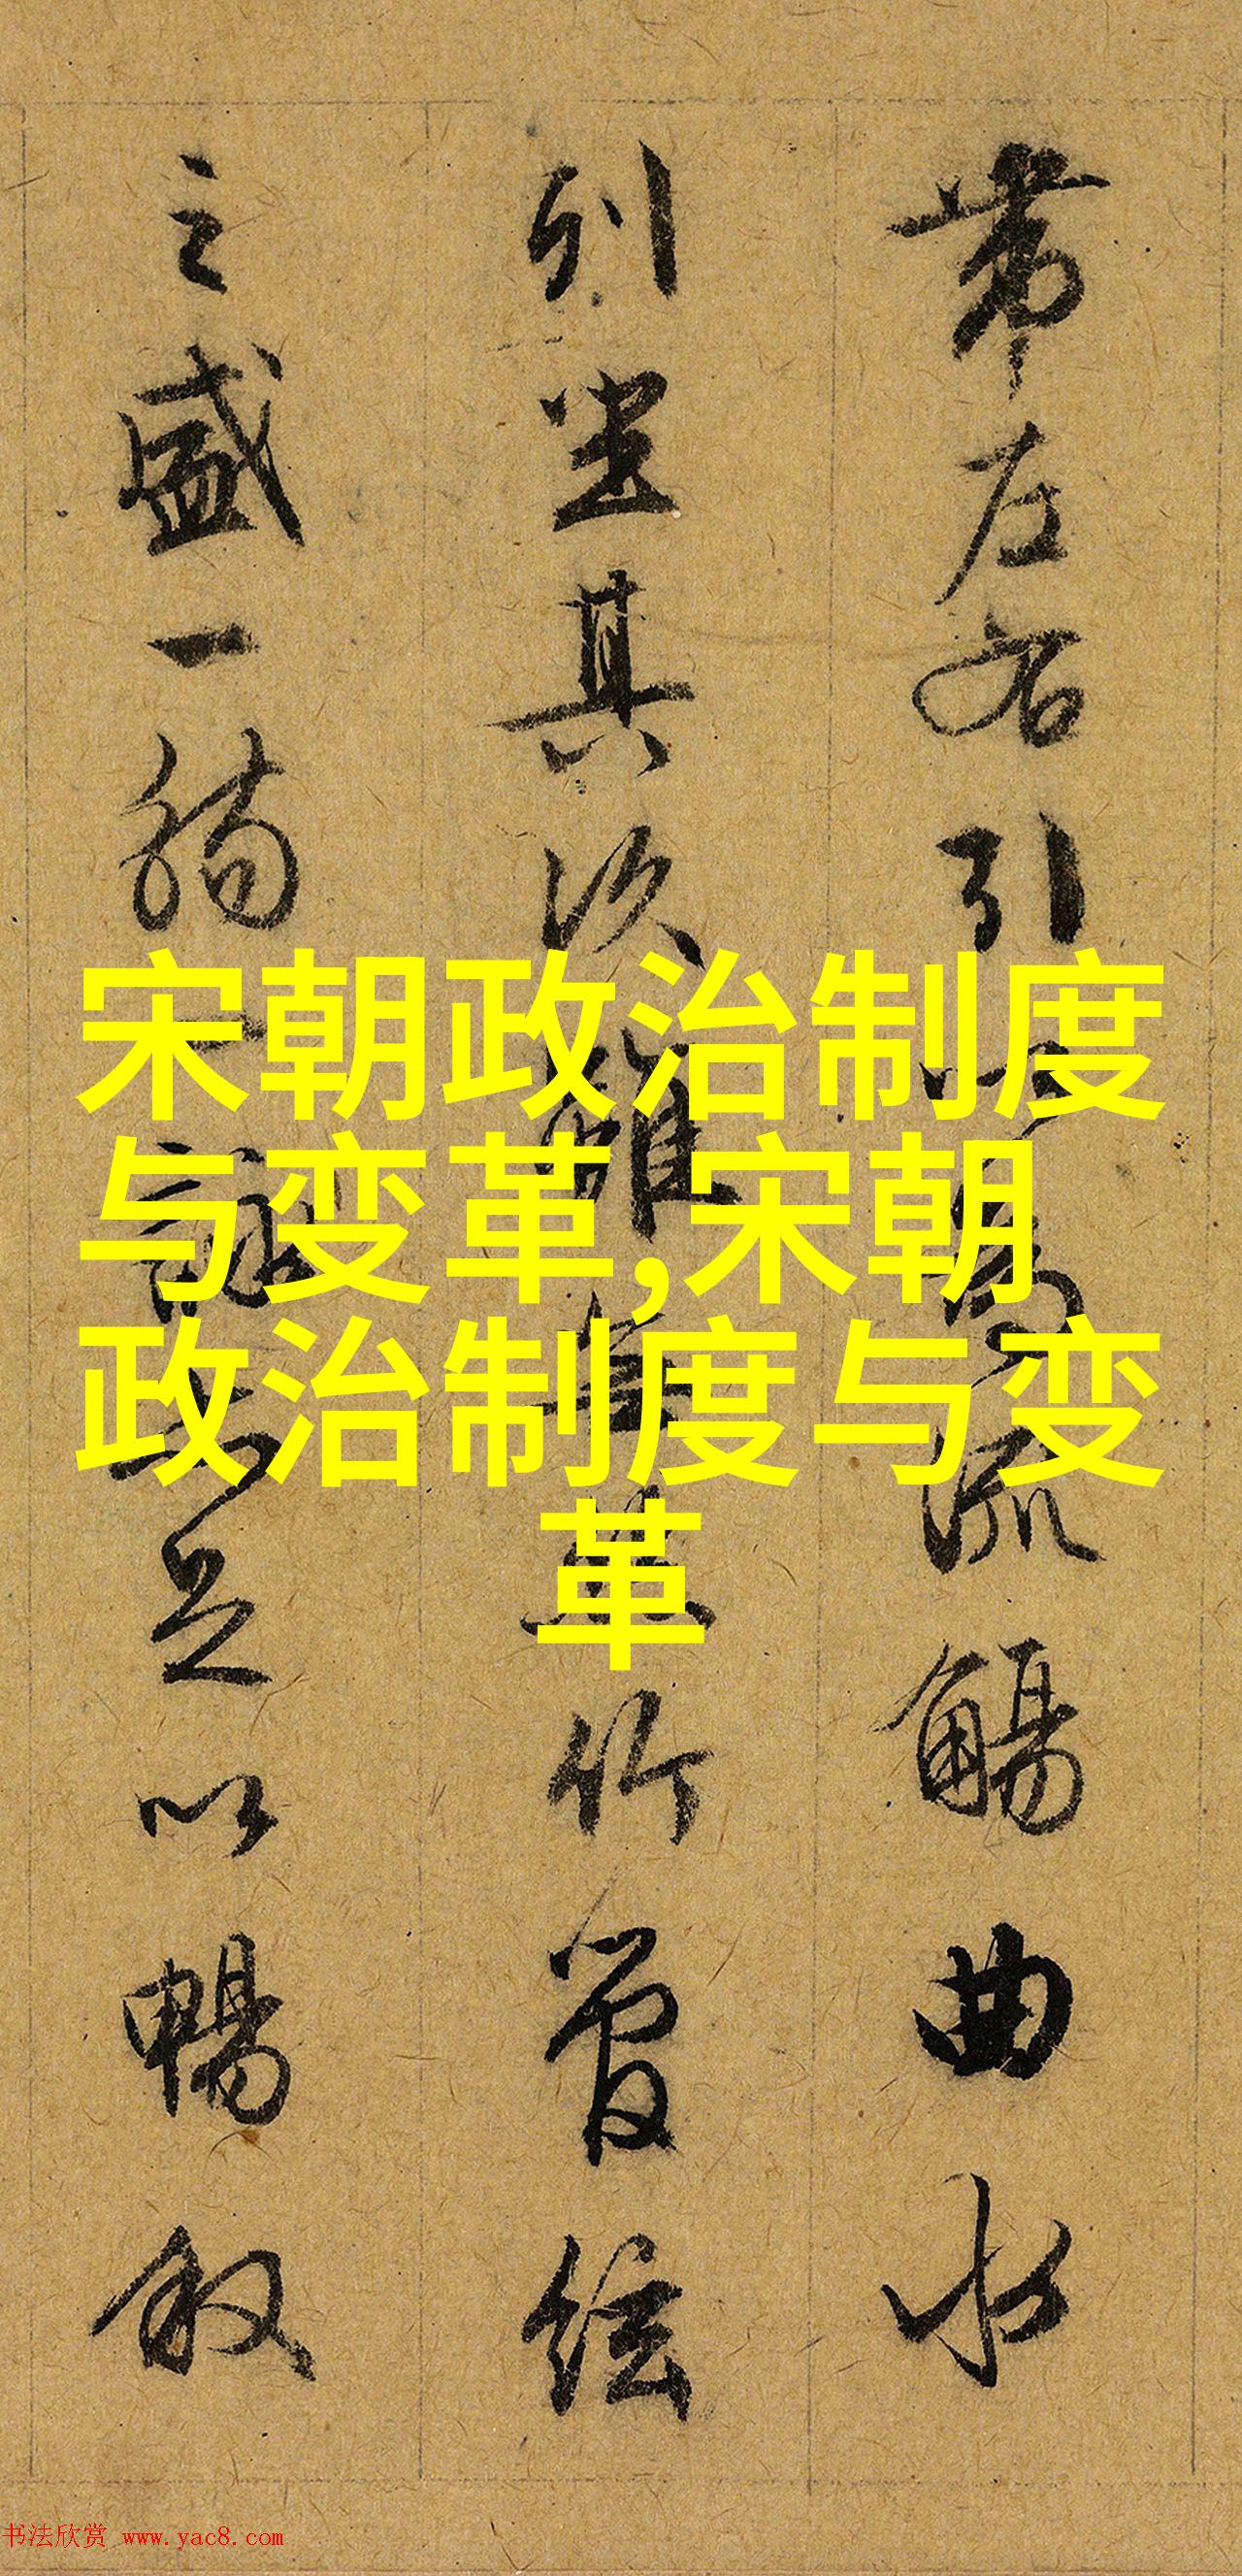 帶左右引以為流觴曲水
列坐其次雖無絲竹管絃
之盛一觴一詠亦足以暢敘
宋朝政治制度
与变革,宋朝
政治制度与变
革
书法欣赏 www.yac8.com